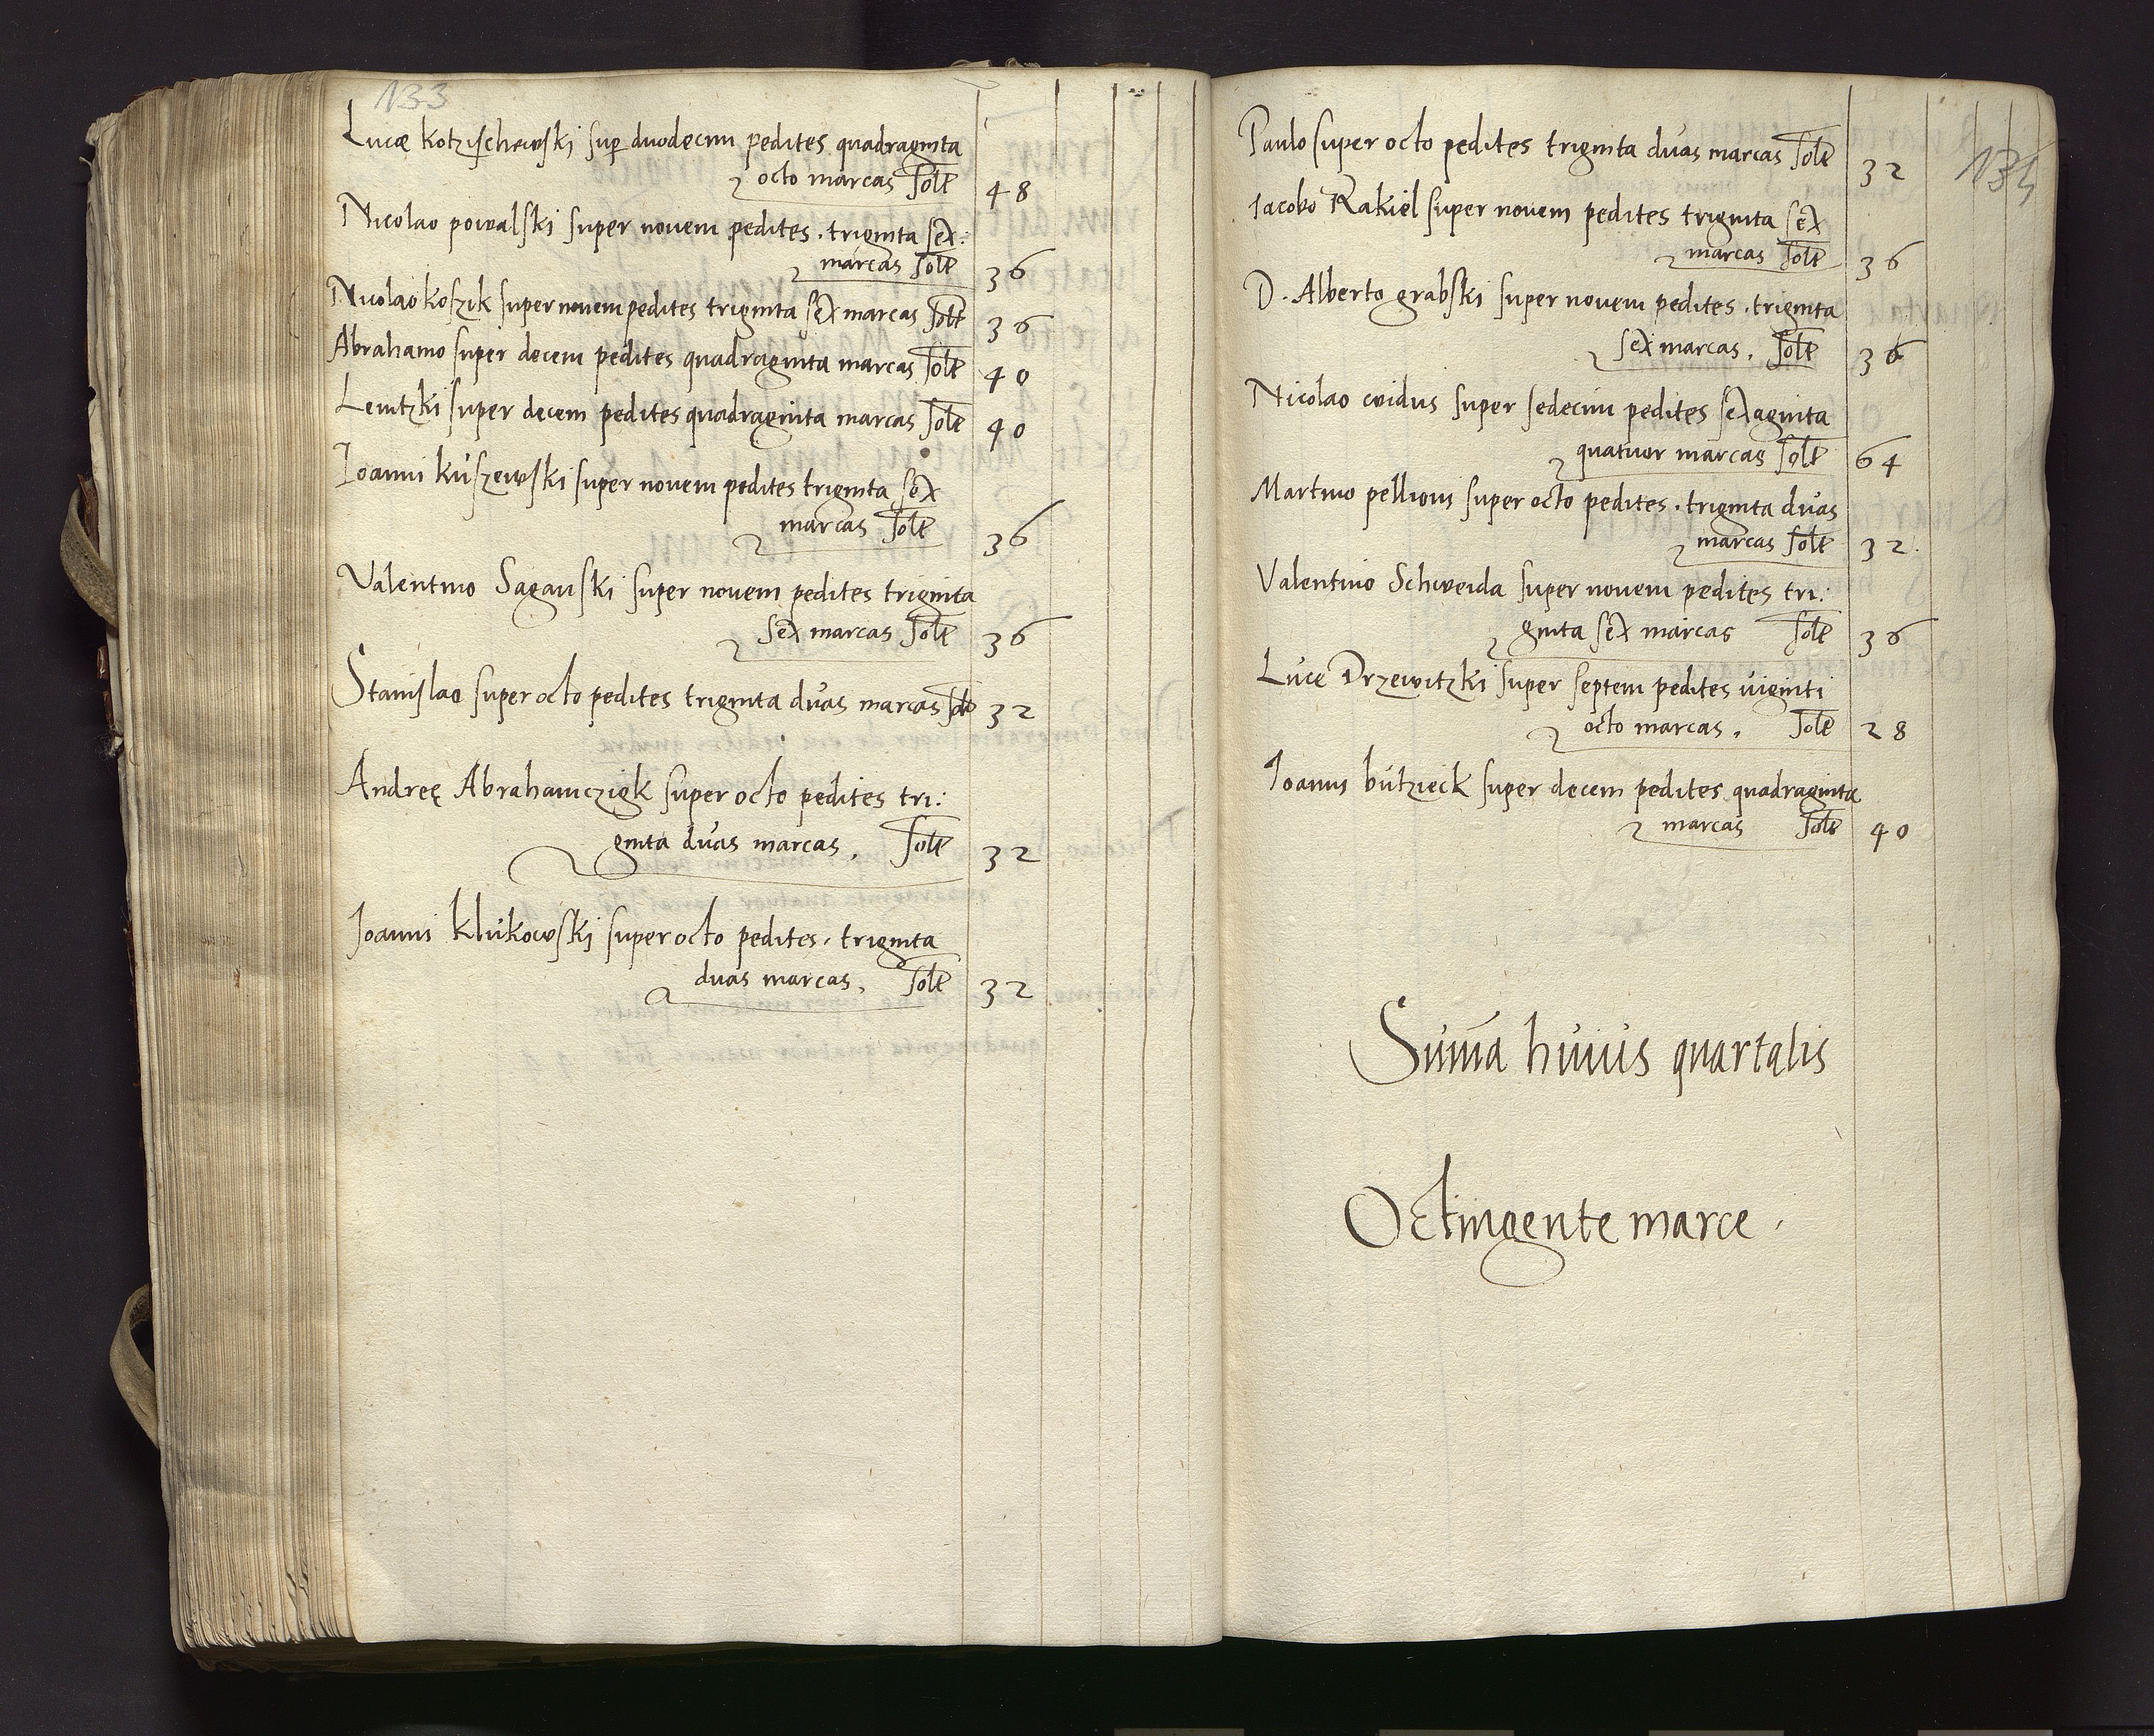 133
Lucæ Kotzischewski sup duodecim pedites quadraginta
octo marcas Solt 48
Nicolao powalski super novem pedites . triginta sex:
marcas Solt 36
Nicolao koszik super novem pedites triginta sex marcas Solt 36
Abrahamo super decem pedites quadraginta marcas Solt 40
Lentzki super decem pedites quadraginta marcas Solt 40
Ioanni Kuszewski super novem pedites triginta sex
marcas Solt 36
Valentino Saganski super novem pedites triginta
sex marcas Solt 36
Stanislao super octo pedites triginta duas marcas Solt 32
Andreę Abrahamczigk super octo pedites tri:
ginta duas marcas . Solt 32
Joanni Klukowski super octo pedites . triginta
duas marcas . Solt 32
134
Paulo super octo pedites triginta duas marcas Solt 32
Iacobo Rakiel super novem pedites triginta sex
marcas Solt 36
D . Alberto grabski super novem pedites . triginta
sex marcas . Solt 36
Nicolao widus super sedecim pedites sexaginta
quatuor marcas Solt 64
Martino pellioni super octo pedites . triginta duas
marcas Solt 32
Valentino Schweida super novem pedites tri:
ginta sex marcas Solt 36
Luce Drzewitzki super septem pedites viginti
octo marcas . Solt 28
Ioanni butzieck super decem pedites quadraginta
marcas Solt 40
Suma huius quartalis
Octingente marce .